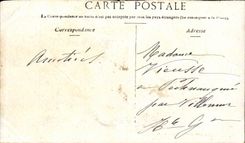 CARTE POSTALE
La Correspondance au recto n'est pas acceptée par tous les pays étrangers (Se renseigner à la Poste)
Correspondance
Adresse
Amitiés
Madame
Vieusse
à
par Villemur
Hte Gne